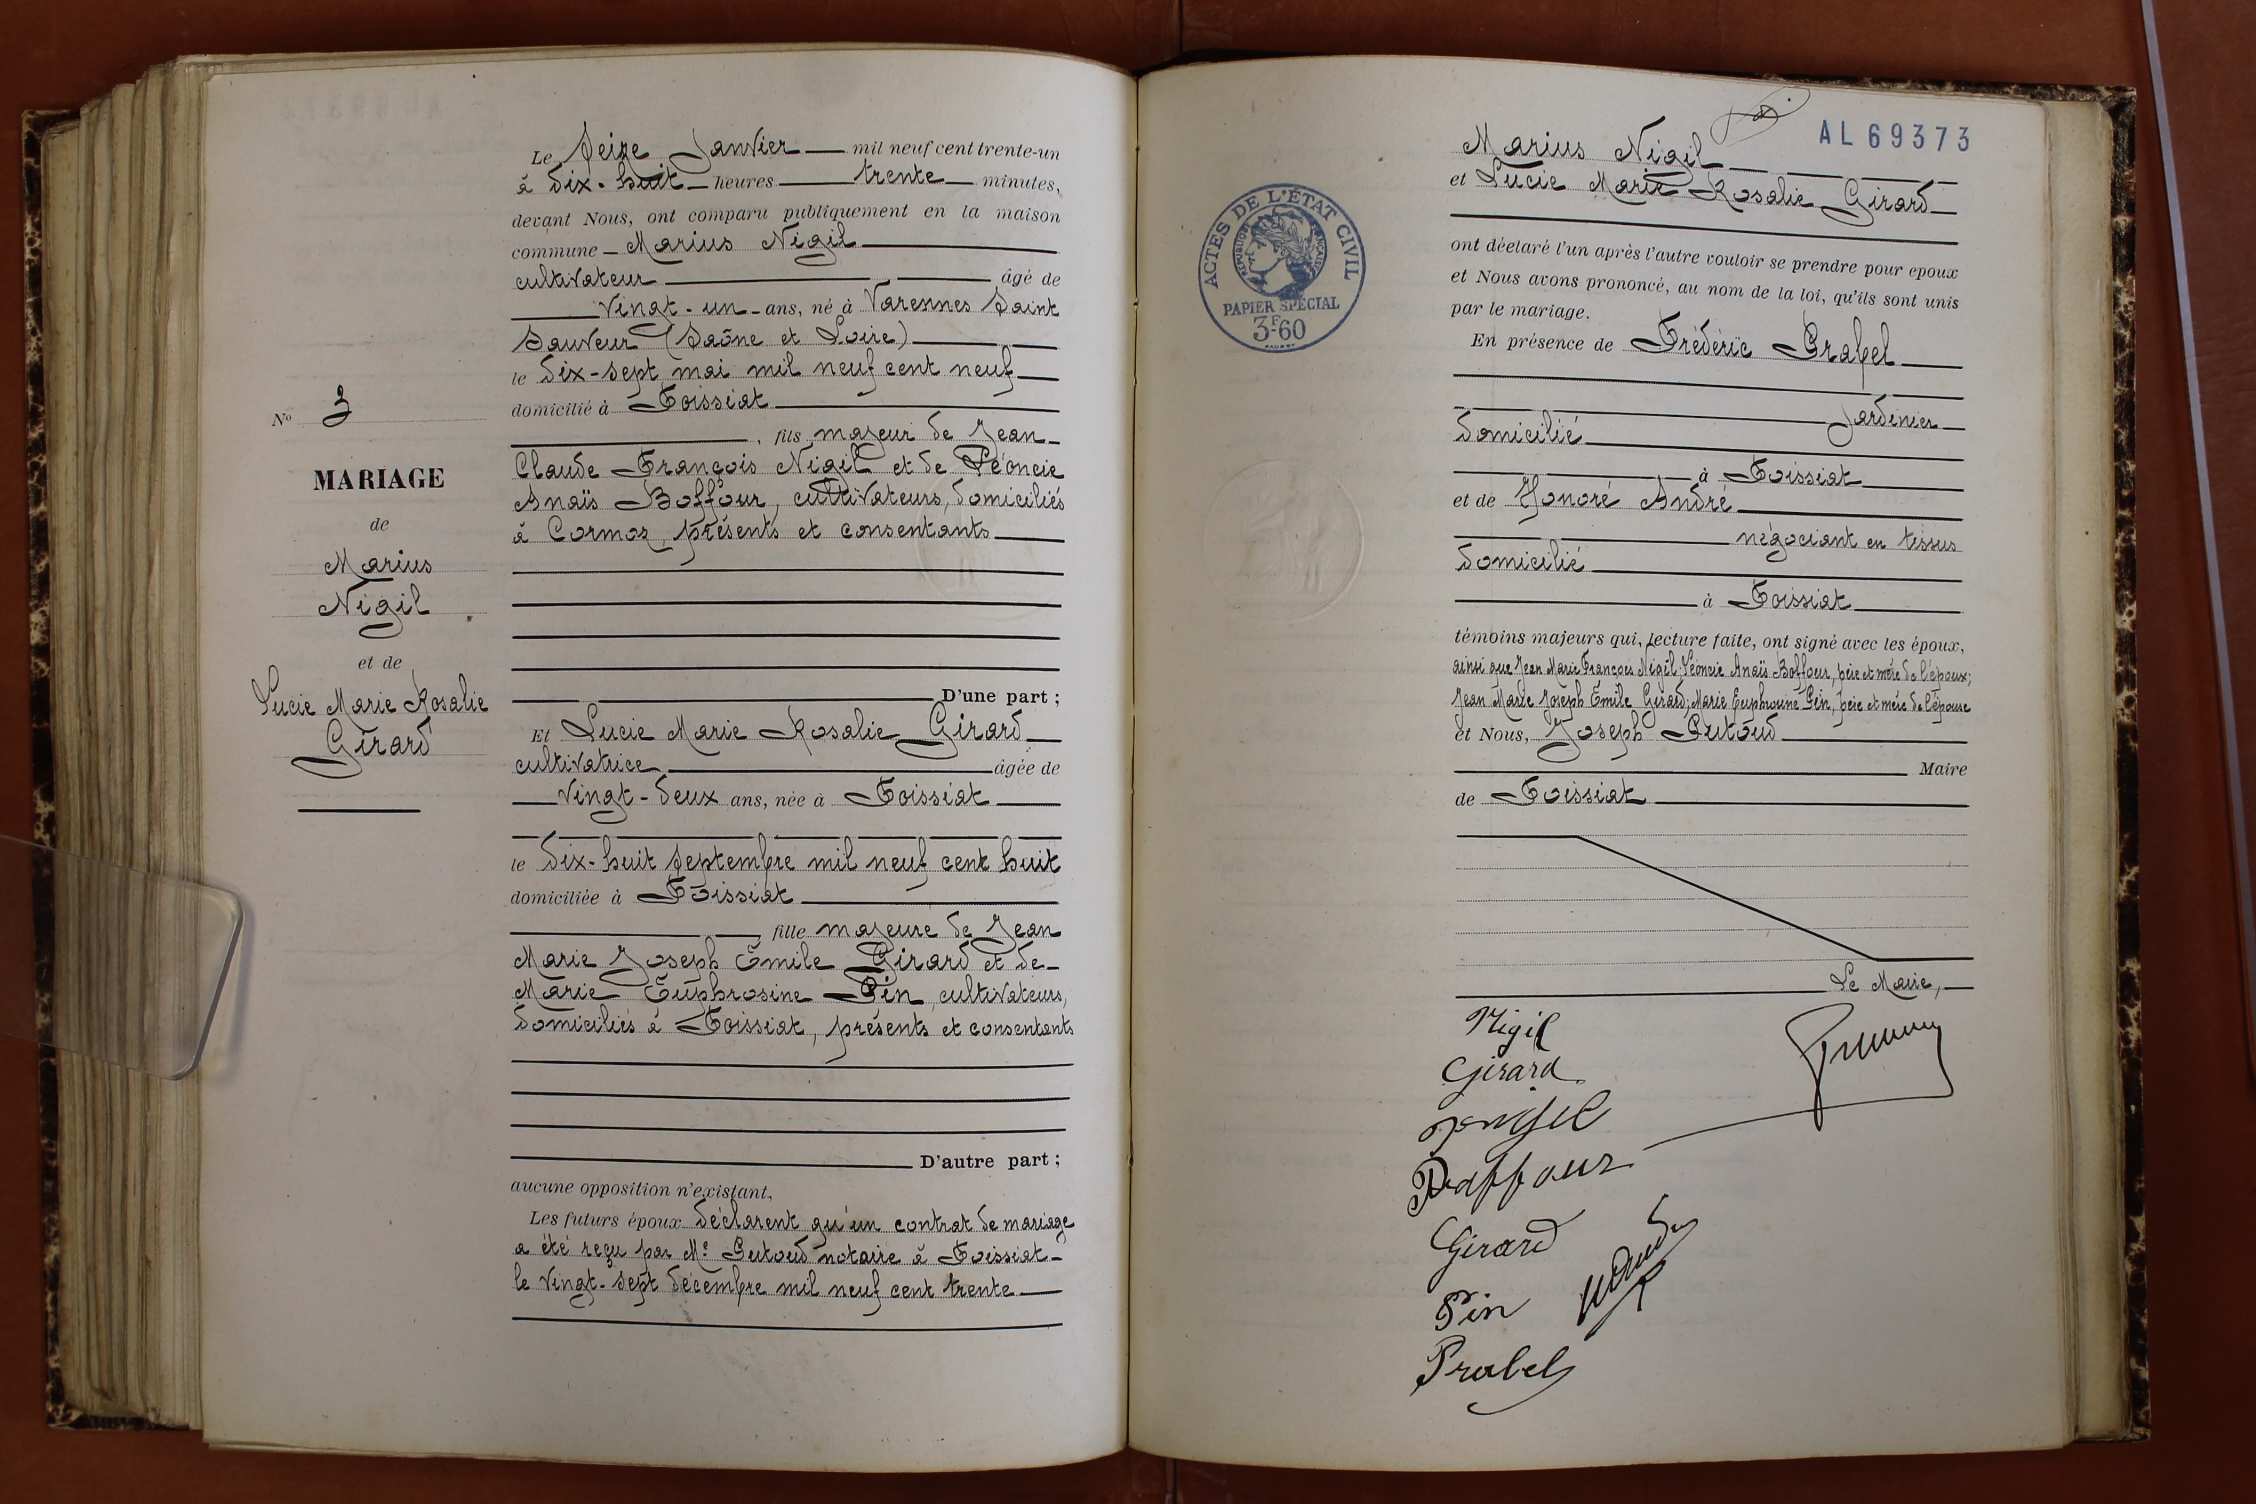 Le Seize Janvier mil neuf cent trente-un
à dix-huit heures trente minutes,
devant Nous, ont comparu publiquement en la maison
commune Marius Nigil
cultivateur âgé de
vingt-un ans, né à Varennes Saint
Sauveur (Saône et Loire)
le dix-sept mai mil neuf cent neuf
domicilié à Foissiat
, fils majeur de Jean
Claude François Nigil et de Léoncie
Anaïs Boffour, cultivateurs, domiciliés
à Cormoz, présents et consentants
D'une part ;
Et Lucie Marie Rosalie Girard
cultivatrice âgée de
vingt-deux ans, née à Foissiat
le dix-huit septembre mil neuf cent huit
domiciliée à Foissiat
, fille majeure de Jean
Marie Joseph Émile Girard et de
Marie Euphrosine Pin, cultivateurs,
domiciliés à Foissiat, présents et consentants
D'autre part ;
aucune opposition n'existant,
Les futurs époux déclarent qu'un contrat de mariage
a été reçu par Me Putoud notaire à Foissiat
le vingt-sept décembre mil neuf cent trente
No 3
MARIAGE
de
Marius
Nigil
et de
Lucie Marie Rosalie
Girard
AL 69373
Marius Nigil
et Lucie Marie Rosalie Girard
ont déclaré l'un après l'autre vouloir se prendre pour epoux
et Nous avons prononcé, au nom de la loi, qu'ils sont unis
par le mariage.
En présence de Frédéric Prabel
Jardinier
domicilié
à Foissiat
et de Honoré André
négociant en tissus
domicilié
à Foissiat
témoins majeurs qui, lecture faite, ont signé avec les époux,
ainsi que Jean Marie François Nigil, Léoncie Anaïs Boffour, père et mère de l'époux;
Jean Marie Joseph Émile Girard, Marie Euphrosine Pin, père et mère de l'épouse
et Nous, Joseph Putoud
Maire
de Foissiat
Le Maire,
ACTES DE L'ÉTAT CIVIL
RÉPUBLIQUE FRANÇAISE
PAPIER SPÉCIAL
3F60
Nigil
Girard
Nigil
Boffour
Girard
Pin
Prabel